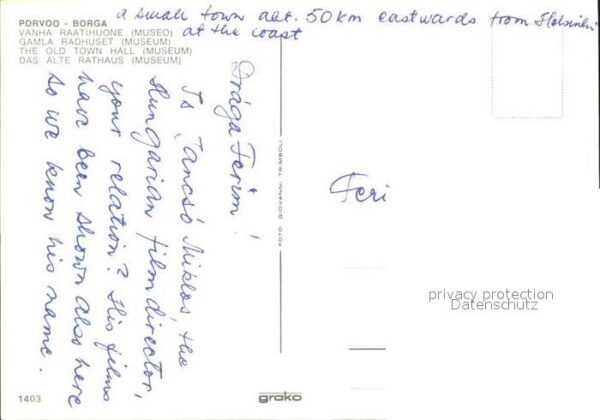 a small town abt. 50 km eastwards from Helsinki
at the coast
PORVOO - BORGA
VANHA RAATIHUONE (MUSEO)
GAMLA RADHUSET (MUSEUM)
THE OLD TOWN HALL (MUSEUM)
DAS ALTE RATHAUS (MUSEUM)
Drága Ferim!
Is Jancsó Miklós, the
Hungarian film director,
your relation? His films
have been shown also here
so we know his name.
FOTO: GIOVANNI TRIMBOLI
Feri
privacy protection
Datenschutz
1403
grako